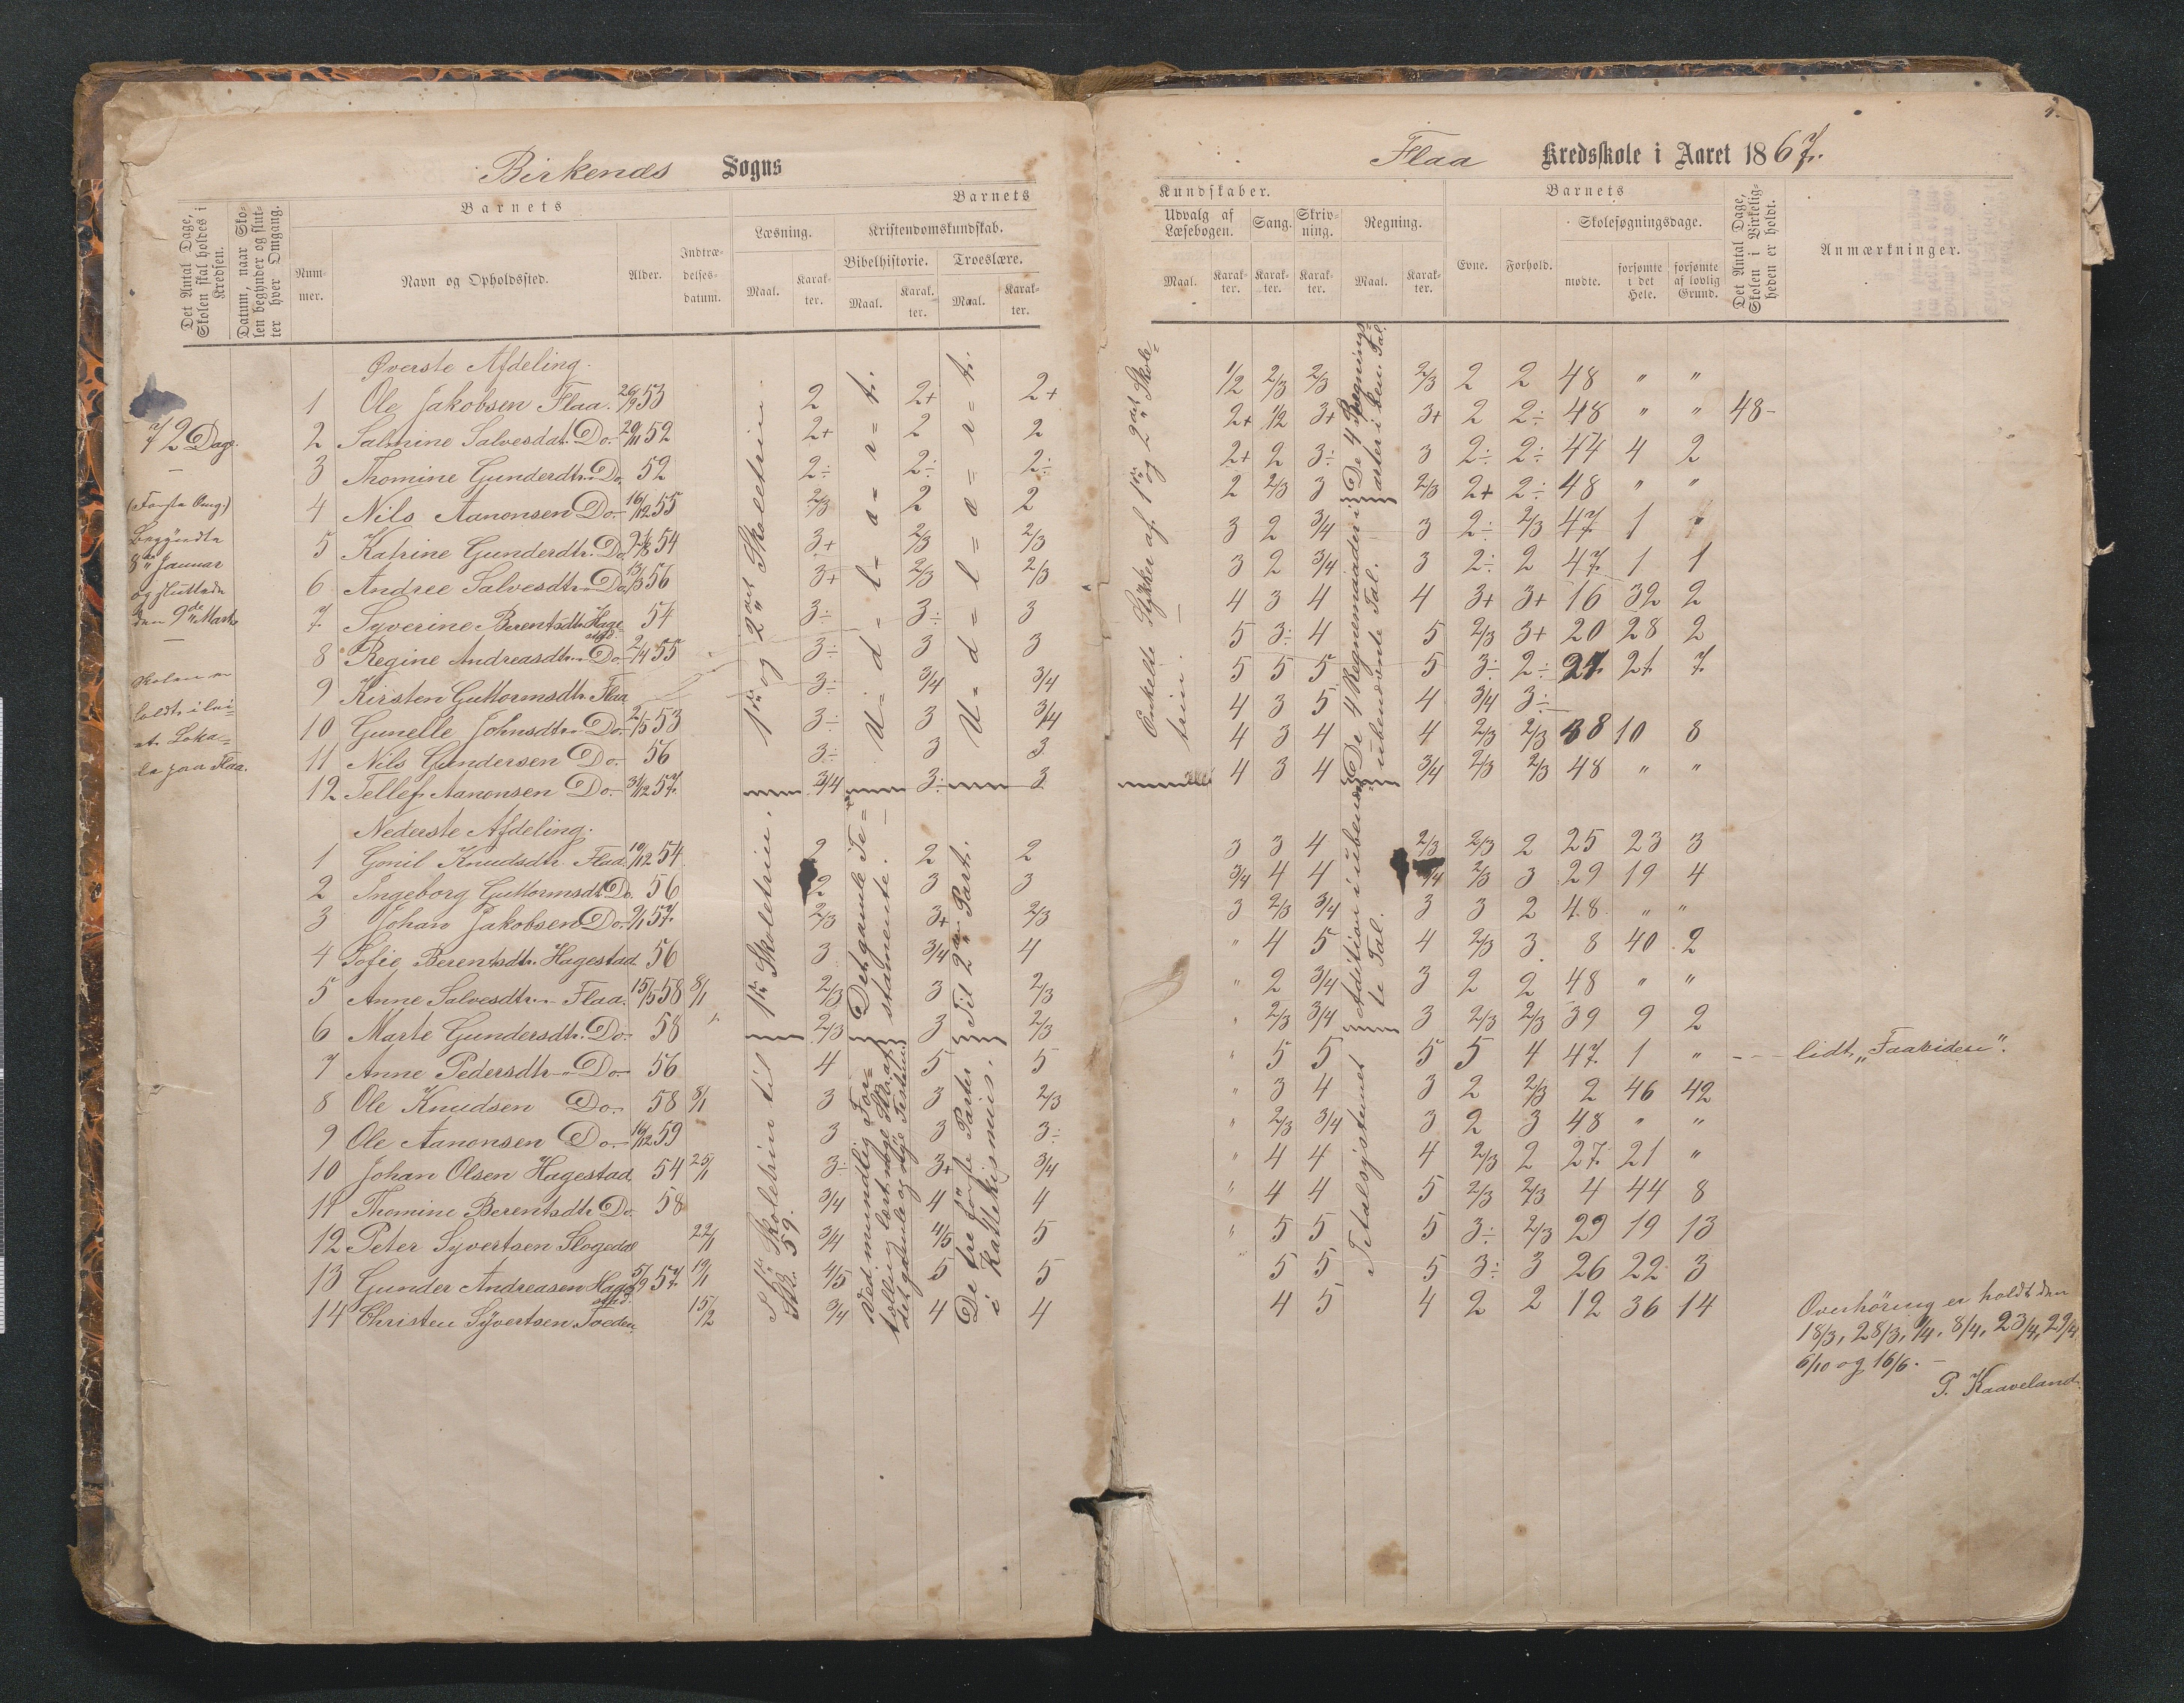 Birkenes Sogns
Det Antal Dage, Skolen skal holdes i Kredsen.
Datum, naar Skolen begynder og slutter hver Omgang.
Barnets
Nummer.
Navn og Opholdssted.
Alder.
Indtrædelsesdatum.
Barnets
Læsning.
Maal.
Karakter.
Kristendomskundskab.
Bibelhistorie.
Maal.
Karakter.
Troeslære.
Maal.
Karakter.
72 Dage.
(Første Omg.)
Begyndte
8de Januar
og sluttede
den 9de Marts
Skolen er
holdt i lei-
et Loka-
le paa Flaa.
Øverste Afdeling.
1 Ole Jakobsen Flaa. 26/9 53 2 2+ 2+
2 Salmine Salvesdat. Do. 29/11 52 2+ 2 2
3 Thomine Gunderdtr. Do. 52 2÷ 2÷ 2÷
4 Nils Aanonsen Do. 16/12 55 2/3 2 2
5 Katrine Gunderdtr. Do. 54 3+ 2/3 2/3
6 Andree Salvesdtr. Do. 13/3 56 3+ 2/3 2/3
7 Syverine Berentsdtr. Hagestad. 54 3÷ 3÷ 3
8 Regine Andreasdtr. Do. 2/4 55 3÷ 3 3
9 Kirsten Guttormsdtr. Flaa 3÷ 3/4 3/4
10 Gunelle Johnsdtr. Do. 2/5 53 3÷ 3 3/4
11 Nils Gundersen Do. 56 3÷ 3 3
12 Tellef Aanonsen Do. 31/12 57. 3/4 3÷ 3
1ste og 2det Skoletrin
Udvalgtr.
Nederste Afdeling.
1 Gonil Knudsdtr. Flaa. 10/12 54 2 2 2
2 Ingeborg Guttormsdt. Do. 56 2 3 3
3 Johan Jakobsen Do. 9/1 57. 2/3 3+ 2/3
4 Sofie Berentsdtr. Hagestad 56 3 3/4 4
5 Anne Salvesdtr. Flaa. 15/5 58 8/1 2/3 3 2/3
6 Marte Gundersdtr. Do. 58 " 2/3 3 2/3
7 Anne Pedersdtr. Do. 56 4 5 5
8 Ole Knudsen Do. 58 8/1 3 3 2/3
9 Ole Aanonsen Do. 16/12 59 3 3 3÷
10 Johan Olsen Hagestad 54 25/1 3÷ 3+ 3/4
11 Thomine Berentsdtr. Do. 58 3/4 4 4
12 Peter Syvertsen Slogedal 22/1 3/4 4/5 5
13 Gunder Andreasen Hagestad. 5/9 57. 19/1 4/5 5 5
14 Christen Syvertsen Toeden. 15/2 3/4 4 4
1ste Skoletrin.
Det gamle Te-
stamente.
Til 2den Part.
1ste Skoletrin til
St. 59.
Ved mundlig For-
tælling lært nogle Stk. af
det gamle og nye Testam.
De tre første Parter
i Katekismus.
Flaa Kredsskole i Aaret 1867.
Kundskaber.
Udvalg af Læsebogen.
Maal.
Karakter.
Sang.
Karakter.
Skrivning.
Karakter.
Regning.
Maal.
Karakter.
Barnets
Evne.
Forhold.
Skolesøgningsdage.
mødte.
forsømte i det Hele.
forsømte af lovlig Grund.
Det Antal Dage, Skolen i Virkeligheden er holdt.
Anmærkninger.
Enkelte Stykker af 1ste og 2det Skole-
trin.
De 4 Regningsarter i ben. Tal.
De 4 Regnemaader i
ubenævnte Tal.
1/2 2/3 2/3 2/3 2 2 48 " "
2+ 1/2 3+ 3+ 2 2÷ 48 " " 48-
2+ 2 3÷ 3 2÷ 2÷ 44 4 2
2 2/3 3 2/3 2+ 2÷ 48 " "
3 2 3/4 3 2÷ 2/3 47. 1 "
3 2 3/4 3 2÷ 2 47. 1 1
4 3 4 4 3+ 3+ 16 32 2
5 3÷ 4 5 2/3 3+ 20 28 2
5 5 5 5 3÷ 2÷ 27. 21. 7.
4 3 5 4 3/4 3÷
4 3 4 4 2/3 2/3 38 10 8
4 3 4 3/4 2/3 2/3 48 " "
Addition i ubenævn-
te Tal.
3 3 4 2/3 2/3 2 25 23 3
3/4 4 4 3/4 2/3 3 29 19 4
3 2/3 3/4 3 3 2 48 " "
" 4 5 4 2/3 3 8 40 2
" 2 3/4 3 2 2 48 " "
" 2/3 3/4 3 2/3 2/3 39 9 2
" 5 5 5 5 4 47. 1 " --- lidt „Faavidere".
" 3 4 3 2 2/3 2 46 42
" 2/3 3/4 3 2 3 48 " "
" 4 4 4 2/3 2 27. 21 "
" 4 4 5 2/3 2/3 4 44 8
" 5 5 5 3÷ 2/3 29 19 13
5 5 5 3÷ 3 26 22 3
4 5 4 2 2 12 36 14
Titalsystemet
Overhöring er holdt den
18/3, 28/3, 1/4, 8/4, 23/4, 29/4
6/10 og 16/6. -
P. Kaaveland.